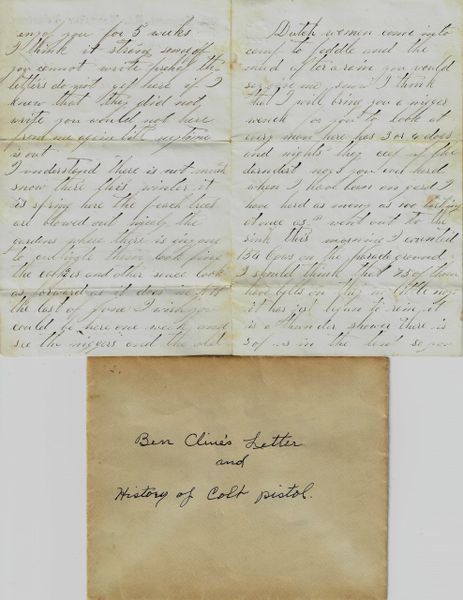 eny of you for 5 weeks
I think it strang some of
you cannot write perhaps the
letters do not get here if I
knew that they did not
write you would not here
from me again till my time
is out
I understand there is not much
snow there this winter it
is spring here the peach trees
are blowed out nicely the
gardens where there is eny one
to them look fine
the and other look
as forward as it does in
the last of June I wish you
could be here one week and
see the nigers and the old
Dutch women come into
camp to peddle and the
mud after a rain you would
give me I think
that I will bring you a niger
wench for you to look at
every man here has 3 or 4 dogs
and nights they cut up the
darndest noys you ever hard
when I have been on gard I
have herd as meny as 100 barking
at once as I went out to the
sink this morning I counted
154 on the parade ground
I should think that 75 of them
have on they in
it has just begun to rain it
is a thunder shower there is
3 of us in the tent so you
Ben Cline's Letter
and
History of Colt pistol.